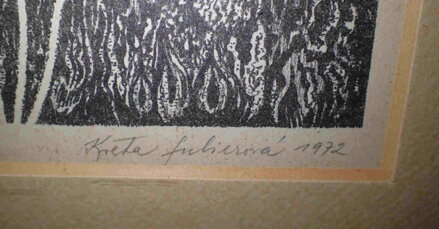 Květa fuhierová 1972